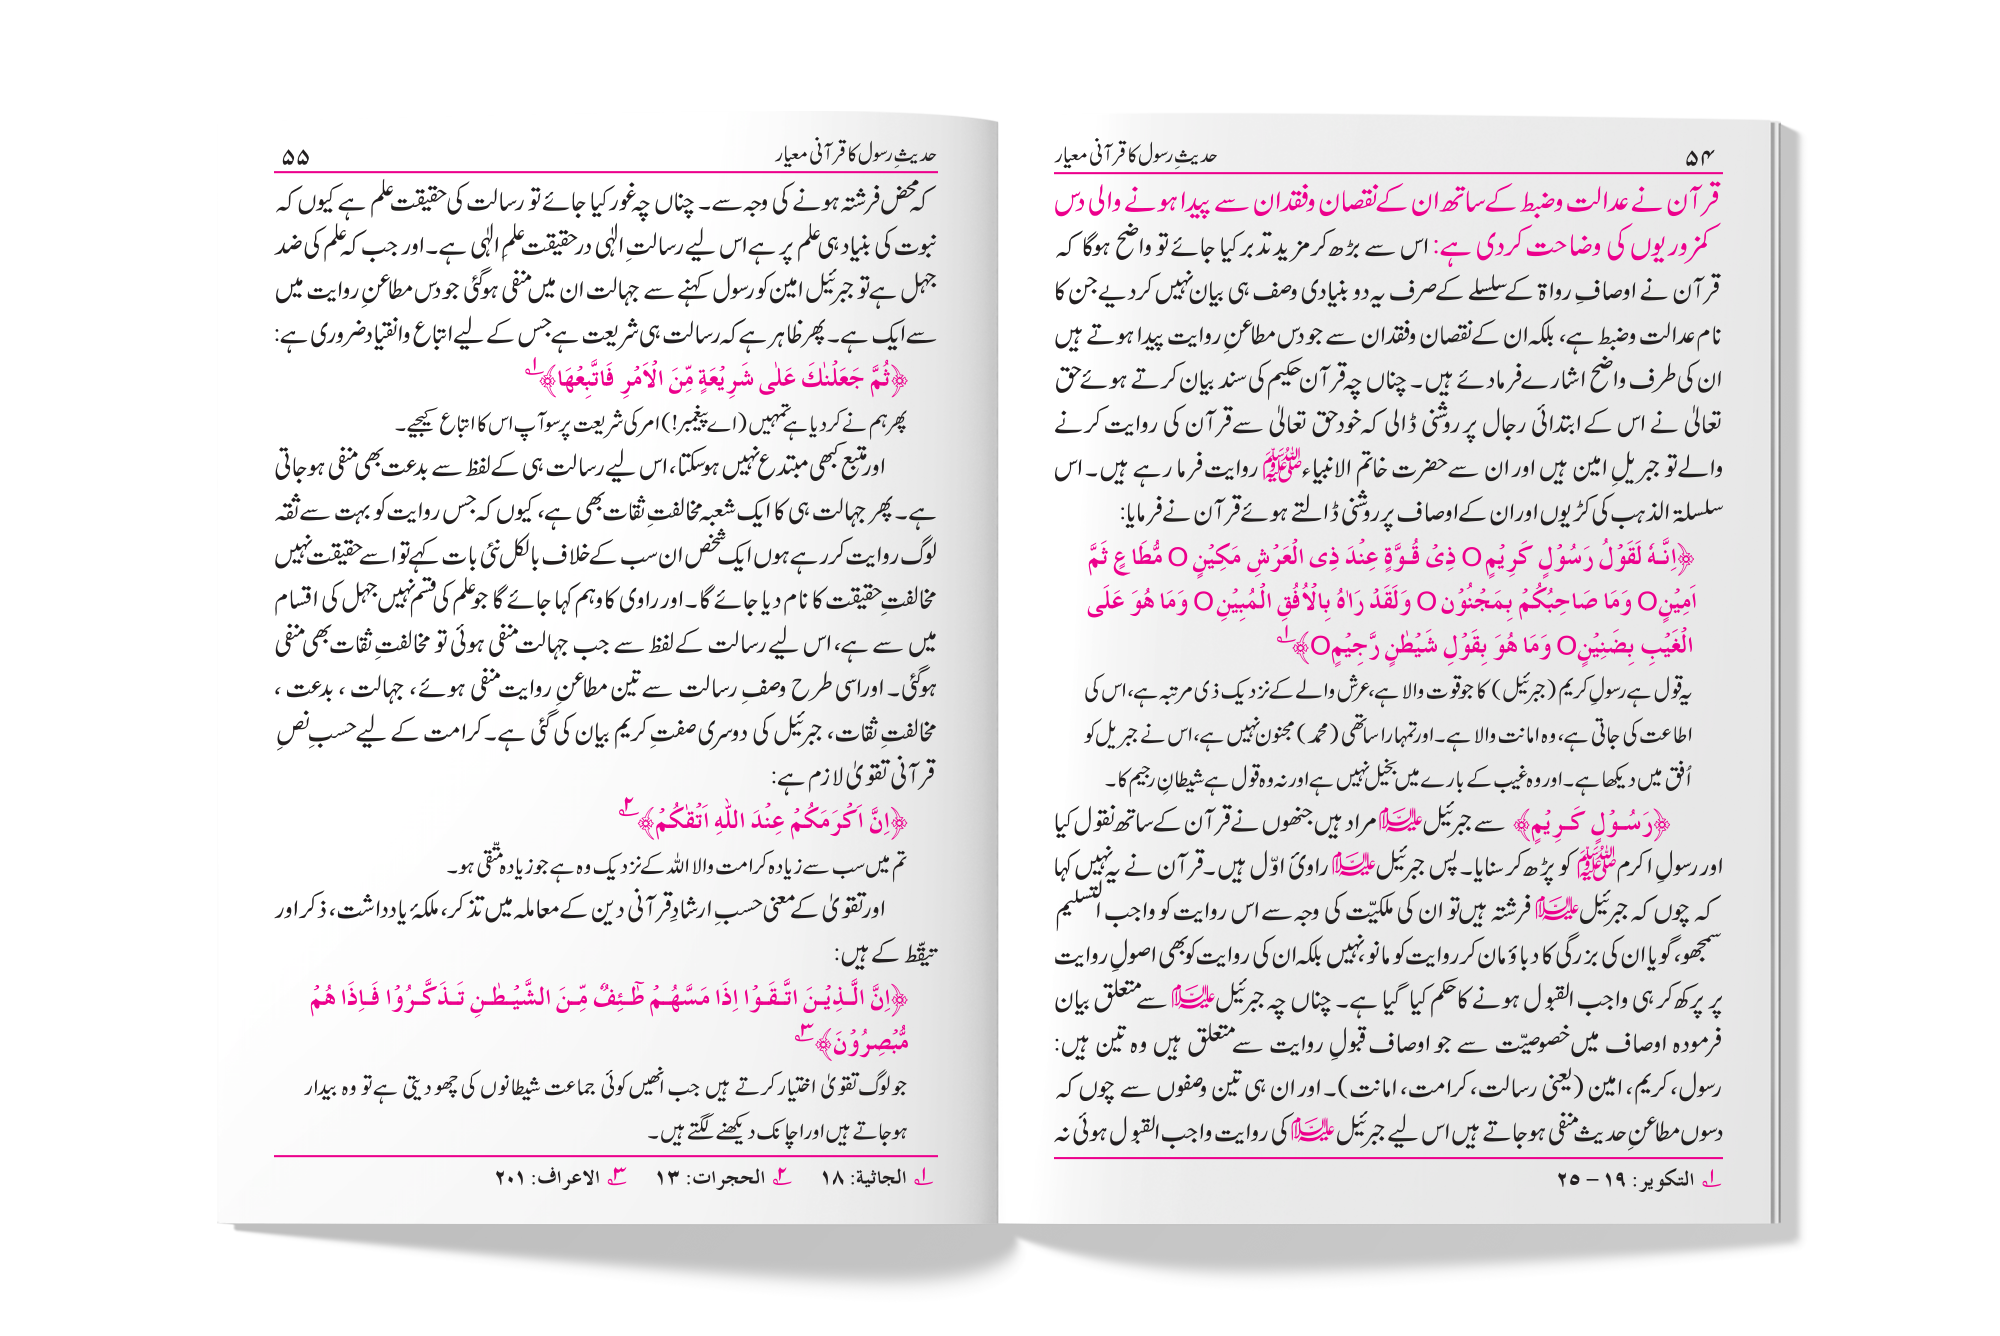 ۵۴ حدیثِ رسول کا قرآنی معیار
قرآن نے عدالت وضبط کے ساتھ ان کے نقصان وفقدان سے پیدا ہونے والی دس
کمزوریوں کی وضاحت کردی ہے: اس سے بڑھ کر مزید تدبر کیا جائے تو واضح ہوگا کہ
قرآن نے اوصافِ رواۃ کے سلسلے کے صرف یہ دو بنیادی وصف ہی بیان نہیں کردیے جن کا
نام عدالت وضبط ہے، بلکہ ان کے نقصان وفقدان سے جو دس مطاعنِ روایت پیدا ہوتے ہیں
ان کی طرف واضح اشارے فرمادئے ہیں۔ چناں چہ قرآن حکیم کی سند بیان کرتے ہوئے حق
تعالیٰ نے اس کے ابتدائی رجال پر روشنی ڈالی کہ خود حق تعالیٰ سے قرآن کی روایت کرنے
والے تو جبریلِ امین ہیں اور ان سے حضرت خاتم الانبیاء ﷺ روایت فرما رہے ہیں۔ اس
سلسلۃ الذہب کی کڑیوں اور ان کے اوصاف پر روشنی ڈالتے ہوئے قرآن نے فرمایا:
﴿اِنَّہٗ لَقَوْلُ رَسُوْلٍ کَرِیْمٍO ذِیْ قُوَّۃٍ عِنْدَ ذِی الْعَرْشِ مَکِیْنٍO مُّطَاعٍ ثَمَّ
اَمِیْنٍO وَمَا صَاحِبُکُمْ بِمَجْنُوْنO وَلَقَدْ رَاٰہُ بِالْاُفُقِ الْمُبِیْنِO وَمَا ھُوَ عَلَی
الْغَیْبِ بِضَنِیْنٍO وَمَا ھُوَ بِقَوْلِ شَیْطٰنٍ رَّجِیْمٍO﴾ ۱؎
یہ قول ہے رسولِ کریم (جبرئیل) کا جو قوت والا ہے، عرش والے کے نزدیک ذی مرتبہ ہے، اس کی
اطاعت کی جاتی ہے، وہ امانت والا ہے۔ اور تمہارا ساتھی (محمد) مجنون نہیں ہے، اس نے جبریل کو
اُفق میں دیکھا ہے۔ اور وہ غیب کے بارے میں بخیل نہیں ہے اور نہ وہ قول ہے شیطانِ رجیم کا۔
﴿رَسُوْلٍ کَرِیْمٍ﴾ سے جبرئیل علیہ السلام مراد ہیں جنھوں نے قرآن کے ساتھ نقول کیا
اور رسولِ اکرم ﷺ کو پڑھ کر سنایا۔ پس جبرئیل علیہ السلام راویٔ اوّل ہیں۔ قرآن نے یہ نہیں کہا
کہ چوں کہ جبرئیل علیہ السلام فرشتہ ہیں تو ان کی ملکیّت کی وجہ سے اس روایت کو واجب التسلیم
سمجھو، گویا ان کی بزرگی کا دباؤ مان کر روایت کو مانو، نہیں بلکہ ان کی روایت کو بھی اصولِ روایت
پر پرکھ کر ہی واجب القبول ہونے کا حکم کیا گیا ہے۔ چناں چہ جبرئیل علیہ السلام سے متعلق بیان
فرمودہ اوصاف میں خصوصیّت سے جو اوصاف قبولِ روایت سے متعلق ہیں وہ تین ہیں:
رسول، کریم، امین (یعنی رسالت، کرامت، امانت)۔ اور ان ہی تین وصفوں سے چوں کہ
دسوں مطاعنِ حدیث منفی ہوجاتے ہیں اس لیے جبرئیل علیہ السلام کی روایت واجب القبول ہوئی نہ
۱؎ التکویر: ۱۹ – ۲۵
حدیثِ رسول کا قرآنی معیار ۵۵
کہ محض فرشتہ ہونے کی وجہ سے۔ چناں چہ غور کیا جائے تو رسالت کی حقیقت علم ہے کیوں کہ
نبوت کی بنیاد ہی علم پر ہے اس لیے رسالتِ الٰہی درحقیقت علمِ الٰہی ہے۔ اور جب کہ علم کی ضد
جہل ہے تو جبرئیل امین کو رسول کہنے سے جہالت ان میں منفی ہوگئی جو دس مطاعنِ روایت میں
سے ایک ہے۔ پھر ظاہر ہے کہ رسالت ہی شریعت ہے جس کے لیے اتباع وانقیاد ضروری ہے:
﴿ثُمَّ جَعَلْنٰکَ عَلٰی شَرِیْعَۃٍ مِّنَ الْاَمْرِ فَاتَّبِعْھَا﴾ ۱؎
پھر ہم نے کردیا ہے تمہیں (اے پیغمبر!) امر کی شریعت پر سو آپ اس کا اتباع کیجیے۔
اور متبع کبھی مبتدع نہیں ہوسکتا، اس لیے رسالت ہی کے لفظ سے بدعت بھی منفی ہوجاتی
ہے۔ پھر جہالت ہی کا ایک شعبہ مخالفتِ ثقات بھی ہے، کیوں کہ جس روایت کو بہت سے ثقہ
لوگ روایت کررہے ہوں ایک شخص ان سب کے خلاف بالکل نئی بات کہے تو اسے حقیقت نہیں
مخالفتِ حقیقت کا نام دیا جائے گا۔ اور راوی کا وہم کہا جائے گا جو علم کی قسم نہیں جہل کی اقسام
میں سے ہے، اس لیے رسالت کے لفظ سے جب جہالت منفی ہوئی تو مخالفتِ ثقات بھی منفی
ہوگئی۔ اور اسی طرح وصفِ رسالت سے تین مطاعنِ روایت منفی ہوئے، جہالت ، بدعت ،
مخالفتِ ثقات، جبرئیل کی دوسری صفت کریم بیان کی گئی ہے۔ کرامت کے لیے حسبِ نصِ
قرآنی تقویٰ لازم ہے:
﴿اِنَّ اَکْرَمَکُمْ عِنْدَ اللّٰہِ اَتْقٰکُمْ﴾ ۲؎
تم میں سب سے زیادہ کرامت والا اللہ کے نزدیک وہ ہے جو زیادہ متّقی ہو۔
اور تقویٰ کے معنی حسبِ ارشادِ قرآنی دین کے معاملہ میں تذکر، ملکۂ یادداشت، ذکر اور
تیقّظ کے ہیں:
﴿اِنَّ الَّذِیْنَ اتَّقَوْا اِذَا مَسَّھُمْ طٰٓئِفٌ مِّنَ الشَّیْطٰنِ تَذَکَّرُوْا فَاِذَا ھُمْ
مُّبْصِرُوْنَ﴾ ۳؎
جو لوگ تقویٰ اختیار کرتے ہیں جب انھیں کوئی جماعت شیطانوں کی چھو دیتی ہے تو وہ بیدار
ہوجاتے ہیں اور اچانک دیکھنے لگتے ہیں۔
۱؎ الجاثیة: ۱۸ ۲؎ الحجرات: ۱۳ ۳؎ الاعراف: ۲۰۱